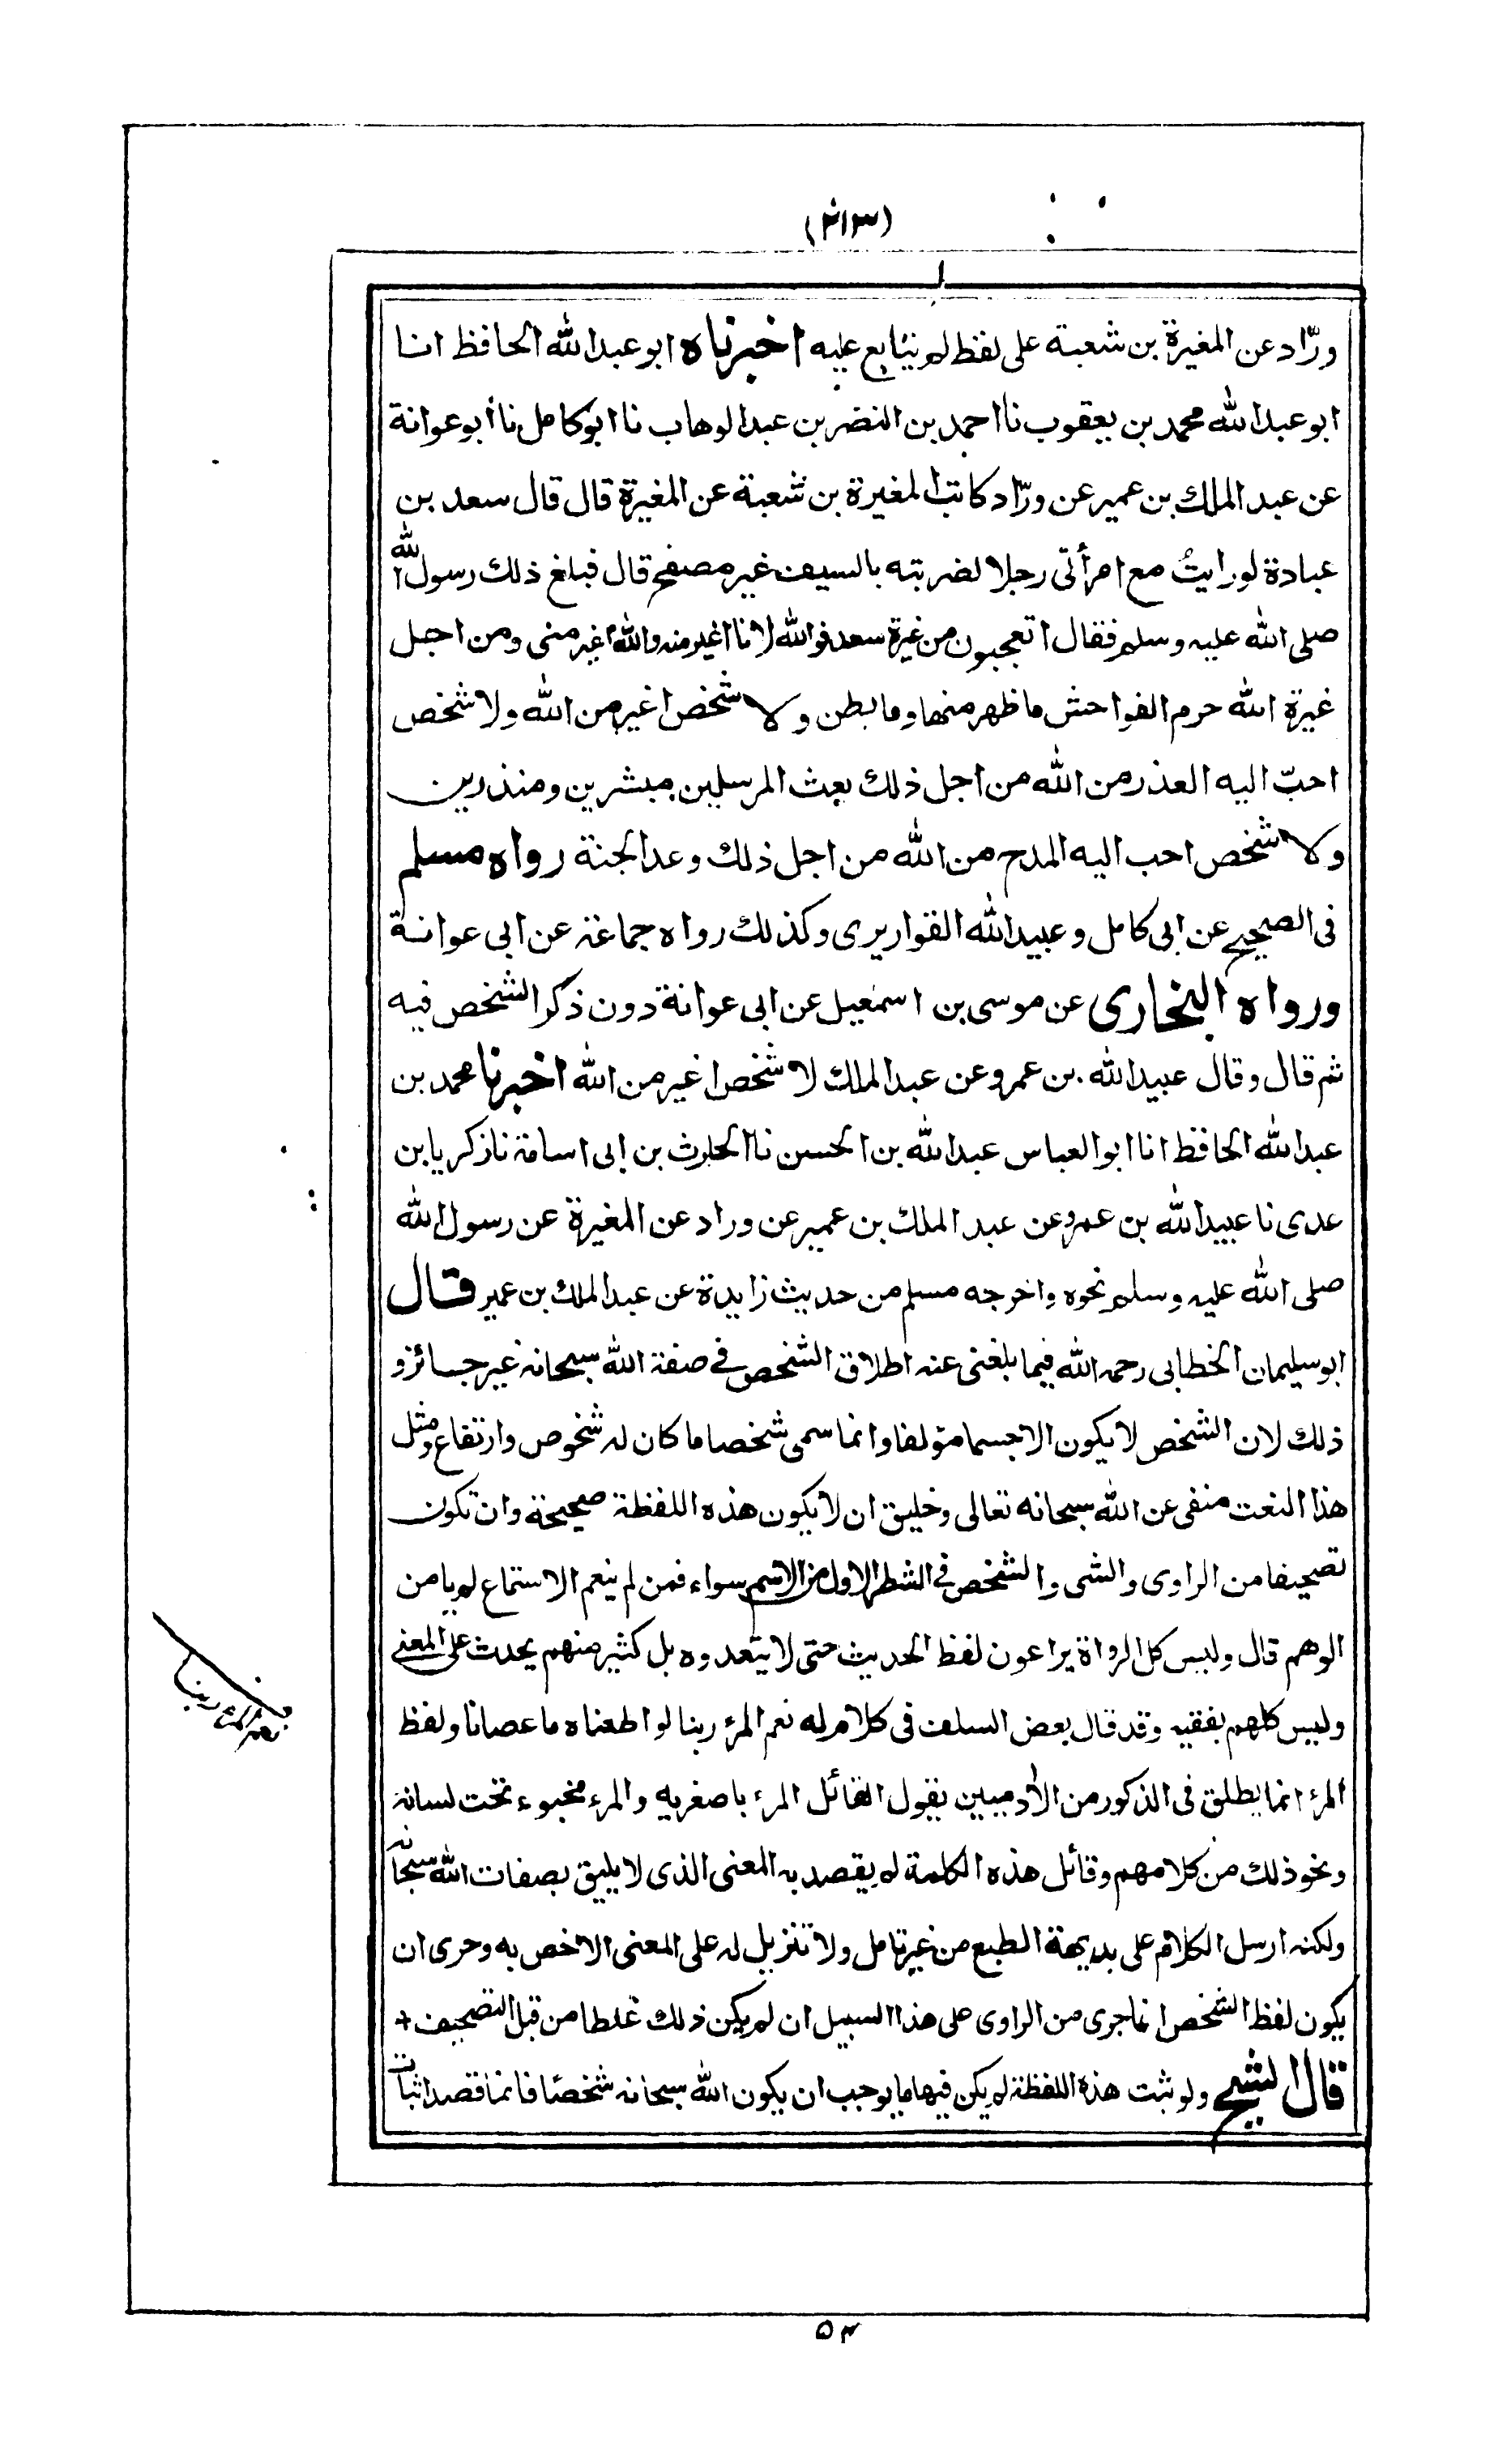 (٢١٣)
ورّاد عن المغيرة بن شعبة على لفظ لم يتابع عليه اخبرناه ابو عبدالله الحافظ انا
ابو عبدالله محمد بن يعقوب نا احمد بن النضر بن عبدالوهاب نا ابو كامل نا أبو عوانة
عن عبد الملك بن عمير عن ورّاد كاتب المغيرة بن شعبة عن المغيرة قال قال سعد بن
عبادة لو رايتُ مع امرأتى رجلا لضربته بالسيف غير مصفح قال فبلغ ذلك رسول الله
صلى الله عليه وسلم فقال اتعجبون من غيرة سعد فوالله لانا اغير منه والله اغير منى ومن اجل
غيرة الله حرم الفواحش ما ظهر منها وما بطن ولا شخص اغير من الله ولا شخص
احبّ اليه العذر من الله من اجل ذلك بعث المرسلين مبشرين ومنذرين
ولا شخص احب اليه المدح من الله من اجل ذلك وعد الجنة رواه مسلم
فى الصحيح عن ابى كامل وعبيدالله القواريرى وكذلك رواه جماعة عن ابى عوانة
ورواه البخارى عن موسى بن اسمعيل عن ابى عوانة دون ذكر الشخص فيه
ثم قال وقال عبيدالله بن عمرو عن عبدالملك لا شخص اغير من الله اخبرنا محمد بن
عبدالله الحافظ انا ابوالعباس عبدالله بن الحسن نا الحارث بن ابى اسامة نا زكريا بن
عدى نا عبيدالله بن عمرو عن عبد الملك بن عمير عن وراد عن المغيرة عن رسول الله
صلى الله عليه وسلم نحوه واخرجه مسلم من حديث زايدة عن عبدالملك بن عمير قال
ابو سليمان الخطابى رحمه الله فيما بلغنى عنه اطلاق الشخص فى صفة الله سبحانه غير جائز و
ذلك لان الشخص لا يكون الا جسما مؤلفا وانما سمى شخصا ما كان له شخوص وارتفاع ومثل
هذا النعت منفى عن الله سبحانه تعالى وخليق ان لا يكون هذه اللفظة صحيحة وان تكون
تصحيفا من الراوى والشى والشخص فى الشطر الاول من الاسم سواء فمن لم ينعم الاستماع لم يامن
الوهم قال وليس كل الرواة يراعون لفظ الحديث حتى لا يتعدوه بل كثير منهم يحدث على المعنى
وليس كلهم بفقيه وقد قال بعض السلف فى كلام له نعم المرء ربنا لو اطعناه ما عصانا ولفظ
المرء انما يطلق فى الذكور من الأدميين يقول القائل المرء باصغريه والمرء مخبوء تحت لسانه
ونحو ذلك من كلامهم وقائل هذه الكلمة لم يقصد به المعنى الذى لا يليق بصفات الله سبحانه
ولكنه ارسل الكلام على بديهة الطبع من غير تامل ولا تنزيل له على المعنى الاخص به وحرى ان
يكون لفظ الشخص انما جرى من الراوى على هذا السبيل ان لم يكن ذلك غلطا من قبل التصحيف +
قال الشيخ ولو ثبت هذه اللفظة لم يكن فيها ما يوجب ان يكون الله سبحانه شخصًا فانما قصد اثبات
نعم المرء ربنا
٥٤